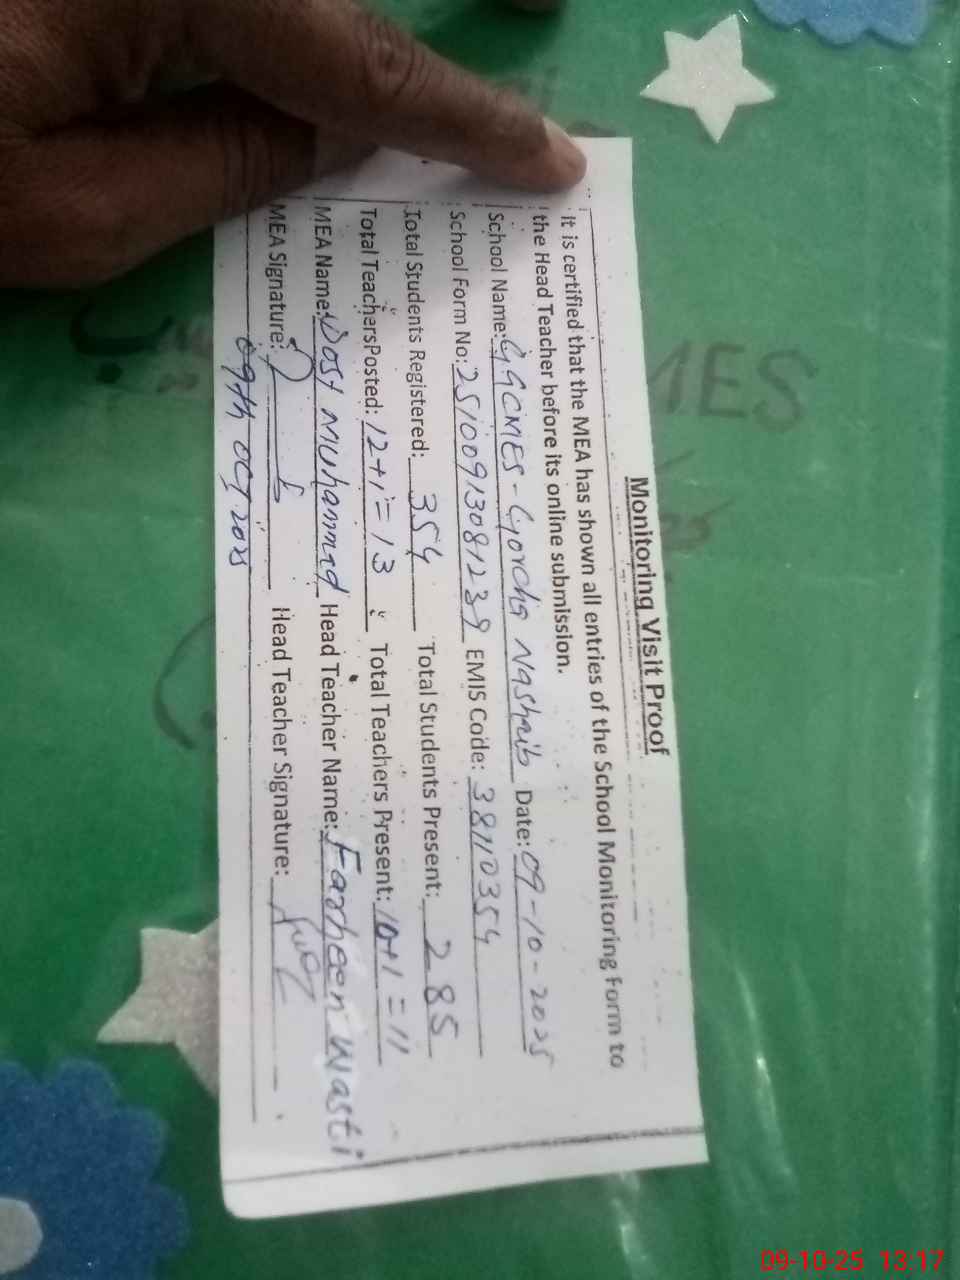 Monitoring Visit Proof
it is certified that the MEA has shown all entries of the School Monitoring Form to
the Head Teacher before its online submission.
School Name: GGCMES - Gorcha Nashaib Date: 09-10-2025
School Form No: 25100913081239 EMIS Code: 38110354
Total Students Registered: 354 Total Students Present: 285
Total TeachersPosted: 12+1=13 Total Teachers Present: 10+1=11
MEA Name: Dost Muhammad Head Teacher Name: Farheen Wasti
MEA Signature: Head Teacher Signature:
09th OCT 2025
MES
09-10-25 13:17